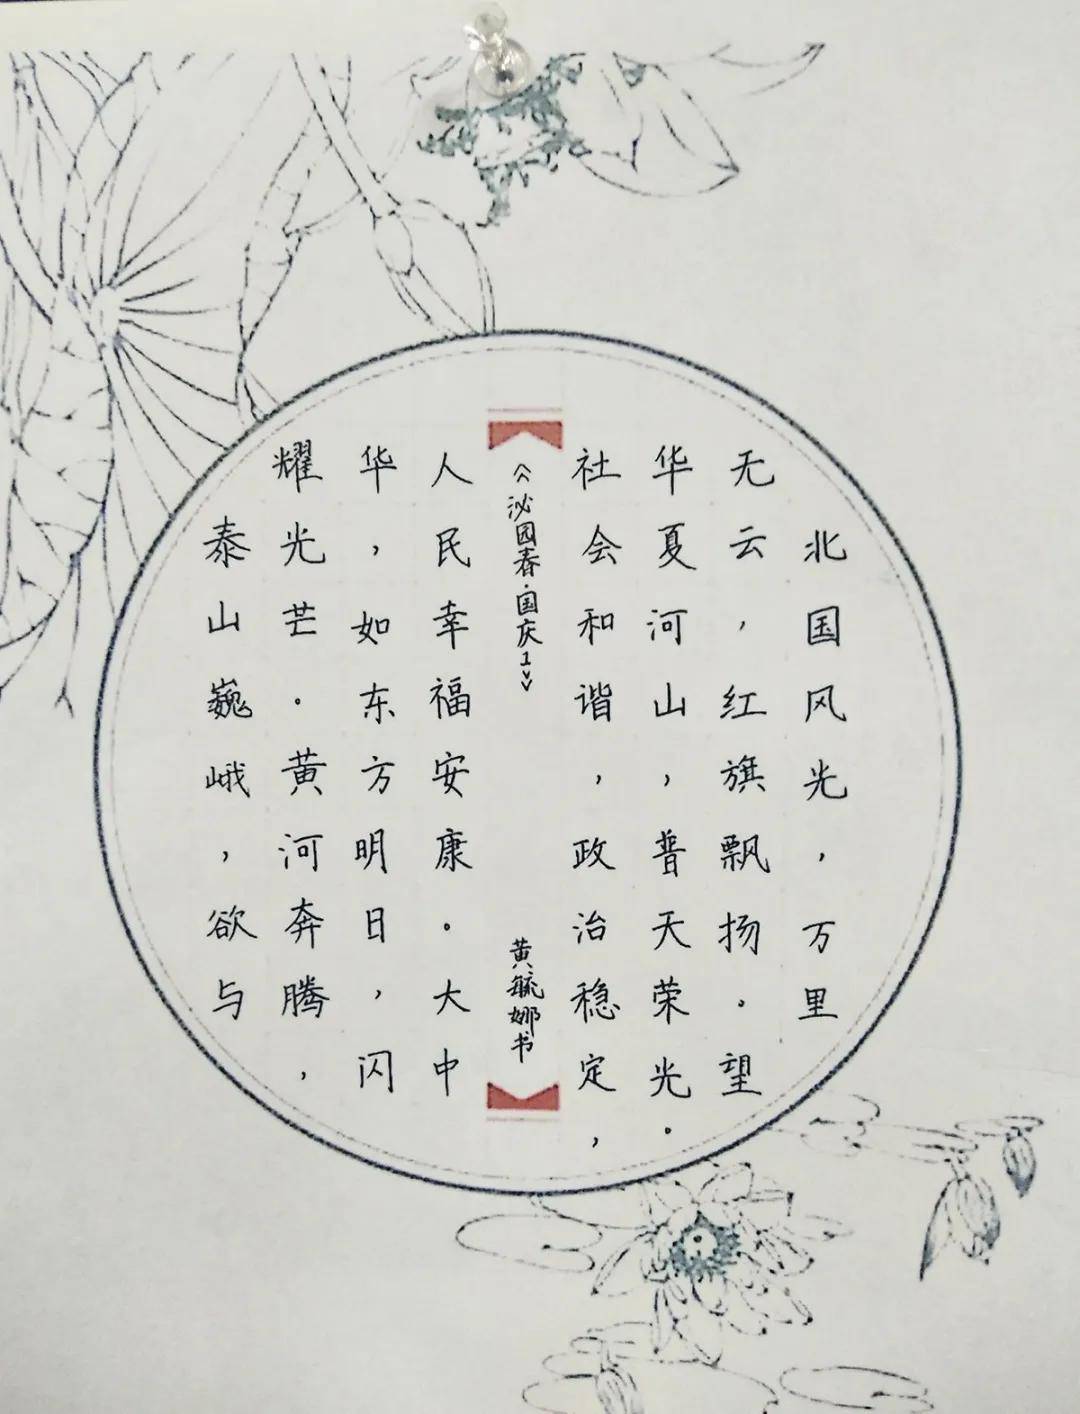 北国风光，万里
无云，红旗飘扬。望
华夏河山，普天荣光。
社会和谐，政治稳定，
《泌园春·国庆1》
黄毓娜书
人民幸福安康。大中
华，如东方明日，闪
耀光芒。黄河奔腾，
泰山巍峨，欲与